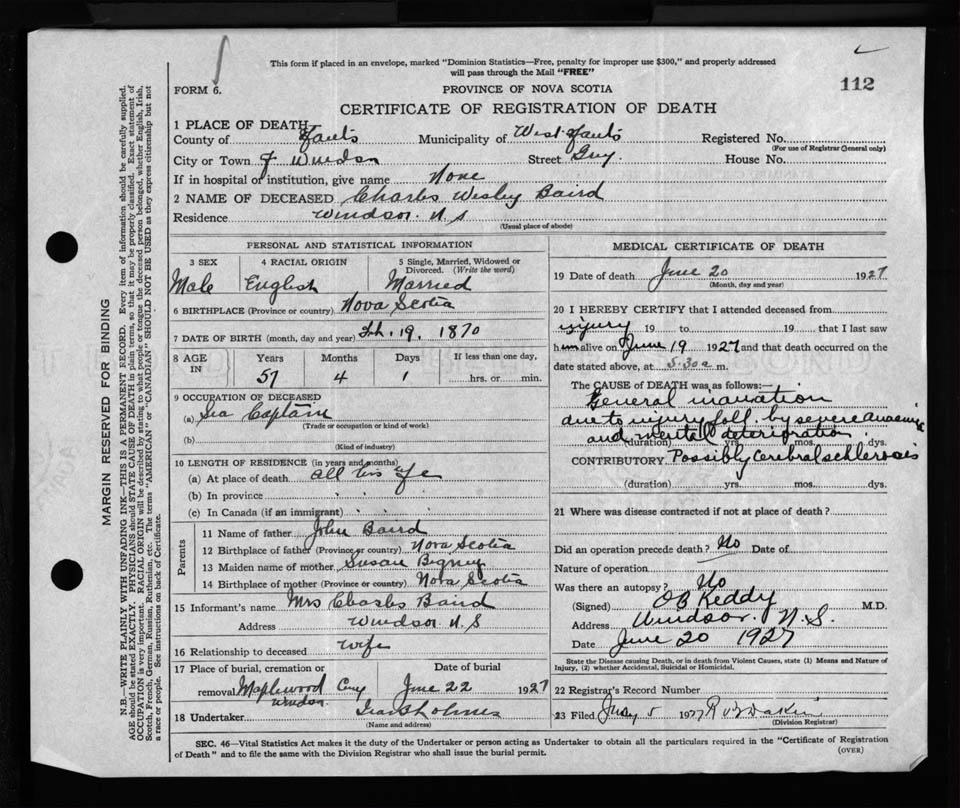 This form if placed in an envelope, marked "Dominion Statistics—Free, penalty for improper use $300," and properly addressed
will pass through the Mail "FREE"
112
FORM 6.
PROVINCE OF NOVA SCOTIA
CERTIFICATE OF REGISTRATION OF DEATH
1 PLACE OF DEATH
County of Hants Municipality of West Hants Registered No.
(For use of Registrar General only)
City or Town of Windsor Street Grey. House No.
If in hospital or institution, give name None
2 NAME OF DECEASED Charles Wesley Baird
Residence Windsor. N S
(Usual place of abode)
PERSONAL AND STATISTICAL INFORMATION
3 SEX 4 RACIAL ORIGIN 5 Single, Married, Widowed or Divorced. (Write the word)
Male English Married
6 BIRTHPLACE (Province or country) Nova Scotia
7 DATE OF BIRTH (month, day and year) Feb. 19, 1870
8 AGE IN Years Months Days If less than one day,
57 4 1 hrs. or min.
9 OCCUPATION OF DECEASED
(a) Sea Captain
(Trade or occupation or kind of work)
(b)
(Kind of industry)
10 LENGTH OF RESIDENCE (in years and months)
(a) At place of death all his life
(b) In province
(c) In Canada (if an immigrant)
Parents
11 Name of father John Baird
12 Birthplace of father (Province or country) Nova Scotia
13 Maiden name of mother Susan Bigney
14 Birthplace of mother (Province or country) Nova Scotia
15 Informant's name Mrs Charles Baird
Address Windsor. N. S
16 Relationship to deceased wife
17 Place of burial, cremation or Date of burial
removal Maplewood Cmy June 22 1927
Windsor
18 Undertaker
(Name and address)
MEDICAL CERTIFICATE OF DEATH
19 Date of death June 20 1927
(Month, day and year)
20 I HEREBY CERTIFY that I attended deceased from
injury 19 to 19 that I last saw
him alive on June 19 1927 and that death occurred on the
date stated above, at 5.30 a m.
The CAUSE of DEATH was as follows:
General inanition
due to injury foll. by severe anaemia
and mental deterioration
(duration) yrs. mos. dys.
CONTRIBUTORY Possibly Cerebral schlerosis
(duration) yrs. mos. dys.
21 Where was disease contracted if not at place of death?
Did an operation precede death? No Date of
Nature of operation
Was there an autopsy? No
(Signed) OB Keddy M.D.
Address Windsor. N.S.
Date June 20 1927
State the Disease causing Death, or in death from Violent Causes, state (1) Means and Nature of
Injury, (2) whether Accidental, Suicidal or Homicidal.
22 Registrar's Record Number
23 Filed July 5 1927
(Division Registrar)
SEC. 46—Vital Statistics Act makes it the duty of the Undertaker or person acting as Undertaker to obtain all the particulars required in the "Certificate of Registration
of Death" and to file the same with the Division Registrar who shall issue the burial permit.
(OVER)
MARGIN RESERVED FOR BINDING
N.B.—WRITE PLAINLY WITH UNFADING INK—THIS IS A PERMANENT RECORD. Every item of information should be carefully supplied.
AGE should be stated EXACTLY. PHYSICIANS should STATE CAUSE OF DEATH in plain terms, so that it may be properly classified. Exact statement of
OCCUPATION is very important. RACIAL ORIGIN will be described by stating to what people or tongue the deceased person belonged, whether English, Irish,
Scotch, French, German, Russian, Ruthenian, etc. The terms "AMERICAN" or "CANADIAN" SHOULD NOT BE USED as they express citizenship but not
a race or people. See instructions on back of Certificate.